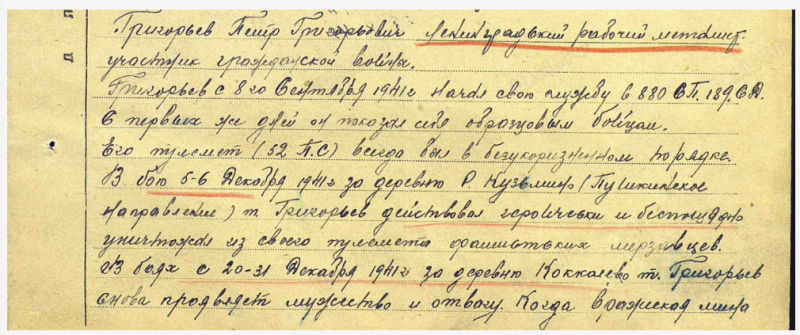 Григорьев Петр Григорьевич Ленинградский рабочий металист.
участник гражданской войны.
Григорьев с 8го Сентября 1941г начал свою службу в 880 СП. 189. СД.
С первых же дней он показал себя образцовым бойцом.
Его пулемет (52 П.С) всегда был в безукоризненном порядке.
В бою 5-6 Декабря 1941г за деревню Р. Кузьмино (Пушкинское
направление) т. Григорьев действовал героически и беспощадно
уничтожал из своего пулемета фашистских мерзавцев.
В боях с 20-31 Декабря 1941г за деревню Коккалево т. Григорьев
снова проявляет мужество и отвагу. Когда вражеская мина